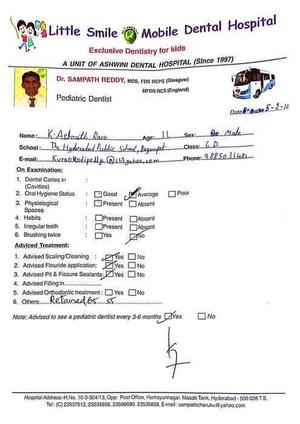 Little Smile Mobile Dental Hospital
Exclusive Dentistry for kids
A UNIT OF ASHWINI DENTAL HOSPITAL (Since 1997)
Dr. SAMPATH REDDY, MDS, FDS RCPS (Glasgow)
MFDS RCS (England)
Pediatric Dentist
Date
Name: K. Age: 11 Sex: Male
School: The Hyderabad Public School, Begumpet Class: 6 D
E-mail: Phone:
On Examination:
1. Dental Caries in :
(Cavities)
2. Oral Hygiene Status : Good Average Poor
3. Physiological : Present Absent
Spaces
4. Habits : Present Absent
5. Irregular teeth : Present Absent
6. Brushing twice : Yes No
Adviced Treatment:
1. Advised Scaling/Cleaning : Yes No
2. Advised Flouride application: Yes No
3. Advised Pit & Fissure Sealants: Yes No
4. Advised Filling in
5. Advised Orthodontic treatment : Yes No
6. Others: Retained 65 55
Note: Advised to see a pediatric dentist every 3-6 months Yes No
Hospital Address: H.No. 10-3-304/13, Opp: Post Office, Humayunnagar, Masab Tank, Hyderabad - 500 028 T.S.
Tel: (C) 23537612, 23535656, 23590690, 23535858. E-mail: sampathcheruku@yahoo.com